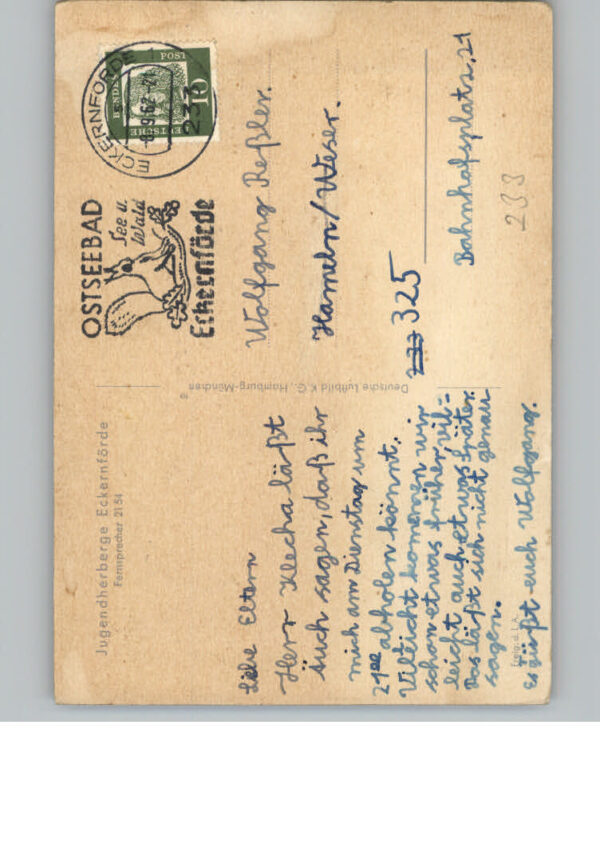 Jugendherberge Eckernförde
Fernsprecher 2154
Liebe Eltern
Herr Klecha läßt
äuch sagen, daß ihr
mich am Dienstag um
21⁰⁰ abholen könnt.
Villeicht kommen wir
schon etwas früher, vil=
leicht auch etwas später.
Das läßt sich nicht genau
sagen.
Es grüßt euch Wolfgang.
Freig. d. L.A.
Deutsche Luftbild K.G. Hamburg-München
OSTSEEBAD
See u.
Wald
Eckernförde
ECKERNFÖRDE 1
-8.9.62-21
DEUTSCHE
BUNDES
POST
10
233
Wolfgang Reßler.
Hameln/Weser.
233 325
Bahnhofsplatz, 21
233